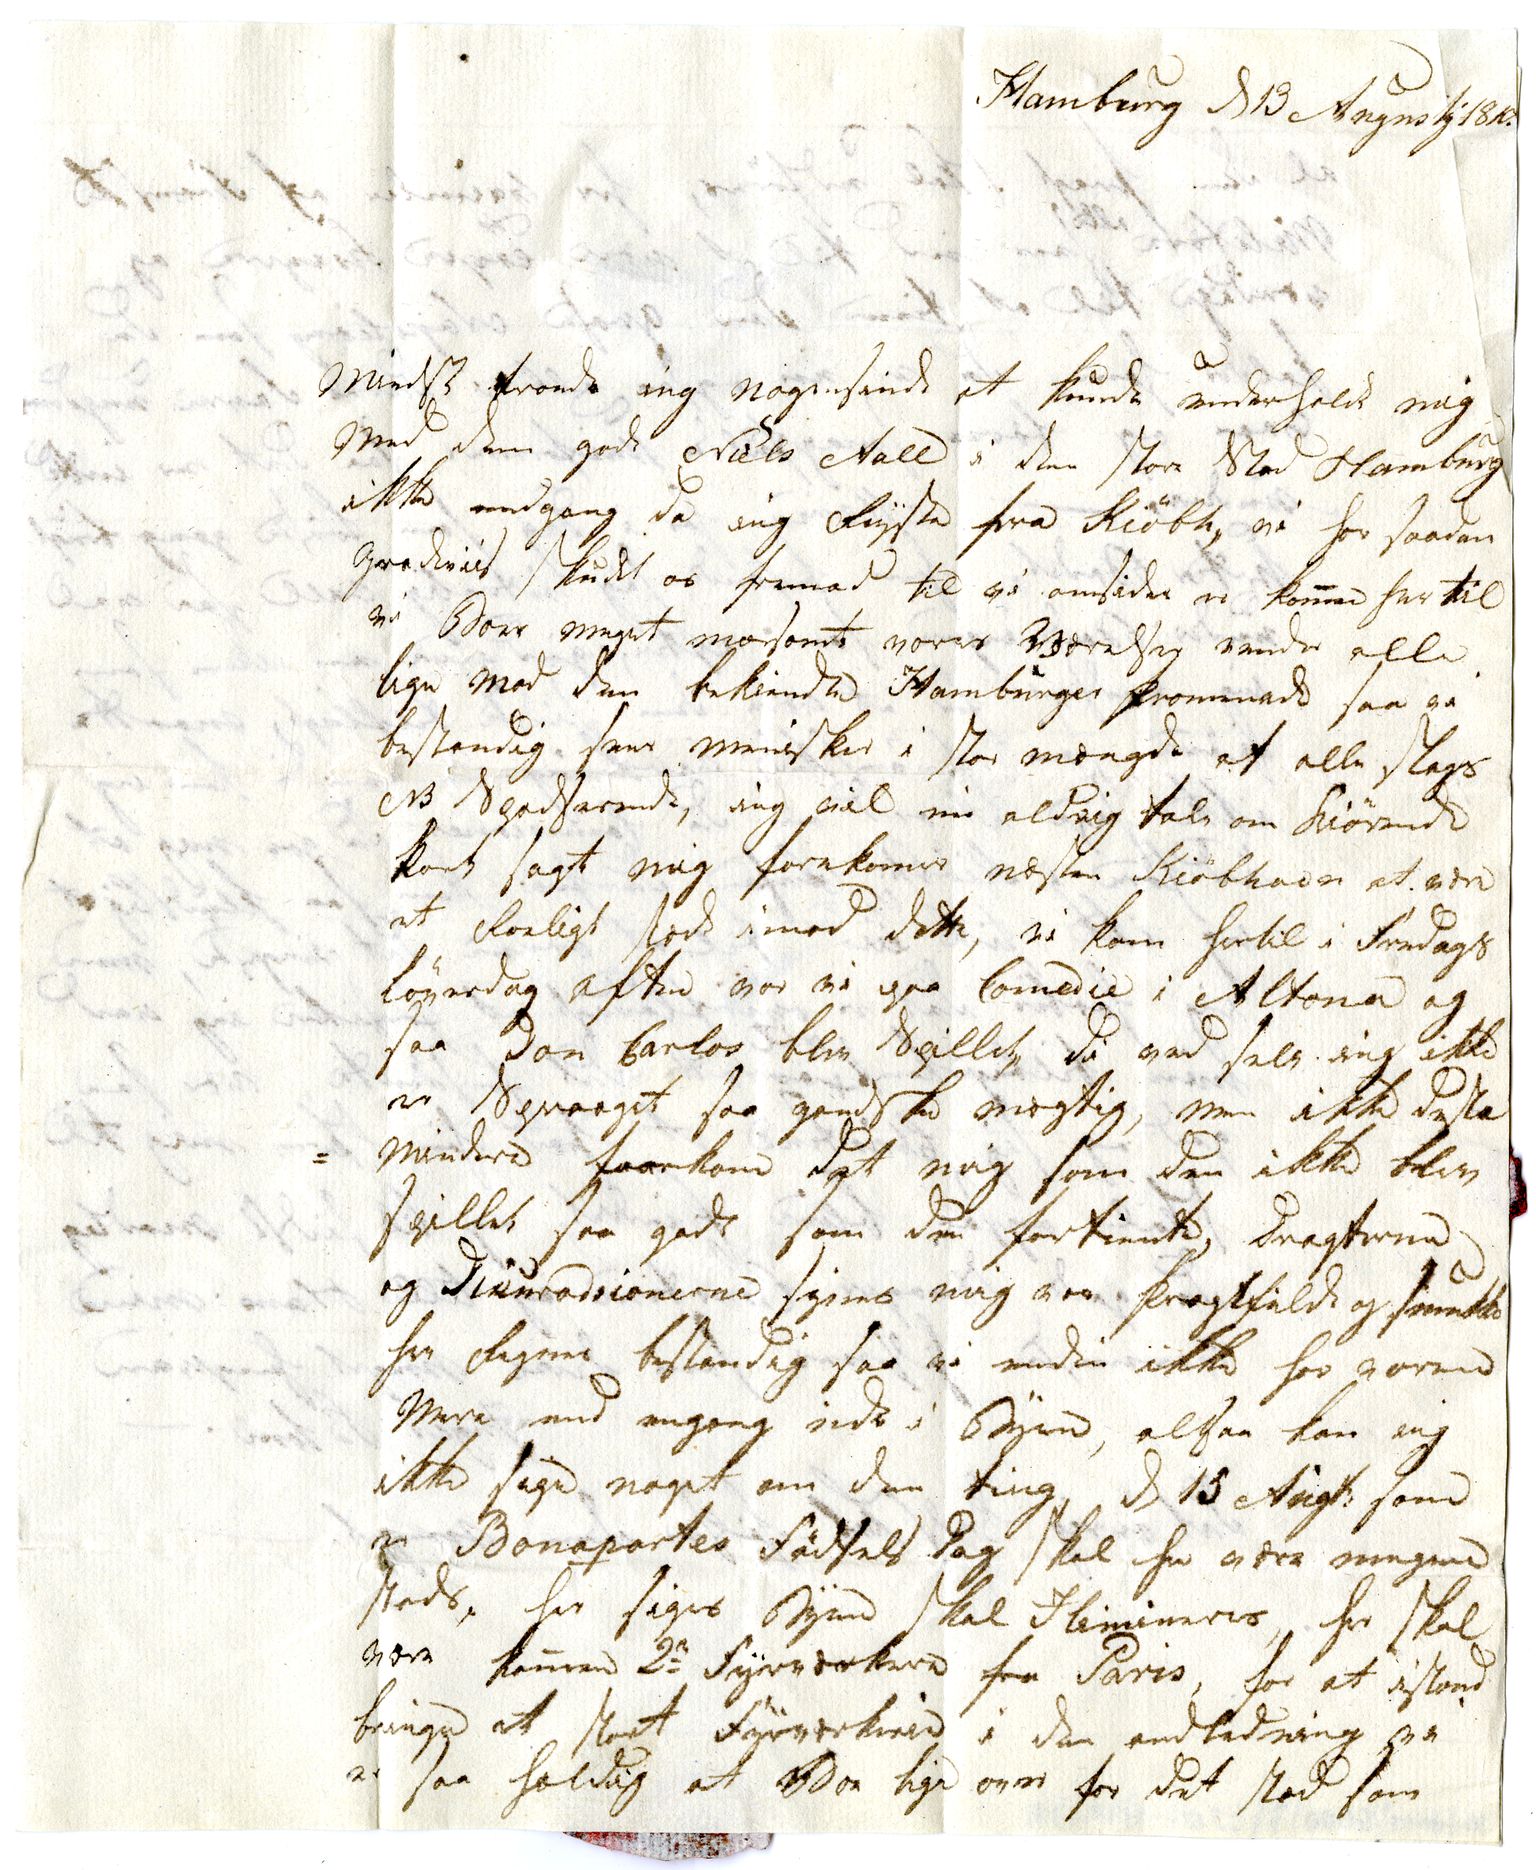 Hamburg d 13 Augustij 18
Mindst troede ieg nogensinde at kunde underholde mig
Med dem gode Niels Aall i den store Stad Hamburg
ikke endgang da ieg Reyste fra Kiöbh, vi har saadan
gradeviis skudt os fremad til vi omsider er komen her til
vi Boer meget morsomt vores Værelser vender alle
lige mod den bekiendte Hamburger promenade saa vi
bestandig seer menisker i stor mængde af alle slags
NB Spadserende, ieg vil nu aldrig tale om kiörende
kort sagt mig forekomer næsten Kiöbhavn at være
et Roeligt sted imod dette, vi kom hertil i Fredags
Löverdag aften var vi paa Comedie i Altona og
saa Don Carlos blev Spillet, da ved selv ieg ikke
er Sproget saa gandske mægtig, men ikke desto
= mindre foorkom det mig som den ikke blev
spillet saa godt som den fortiente, Dragterne
og Dikuradsionerne synes mig var Pragtfulde og smukke
her Regner bestandig saa vi endnu ikke har været
Mere end engang inde i Byen, altsaa kan ieg
ikke sige noget om den ting, d 15 Augt: som
er Bonapartes Födsels Dag skal her være megen
stads, her siges Byen skal Ilimineres, her skal
være komen 2de Fÿrverkere fra Paris, for at istand
bringe et stort Fÿrverkerie i den andledning vi
er saa heldig at Boe lige over for det sted som